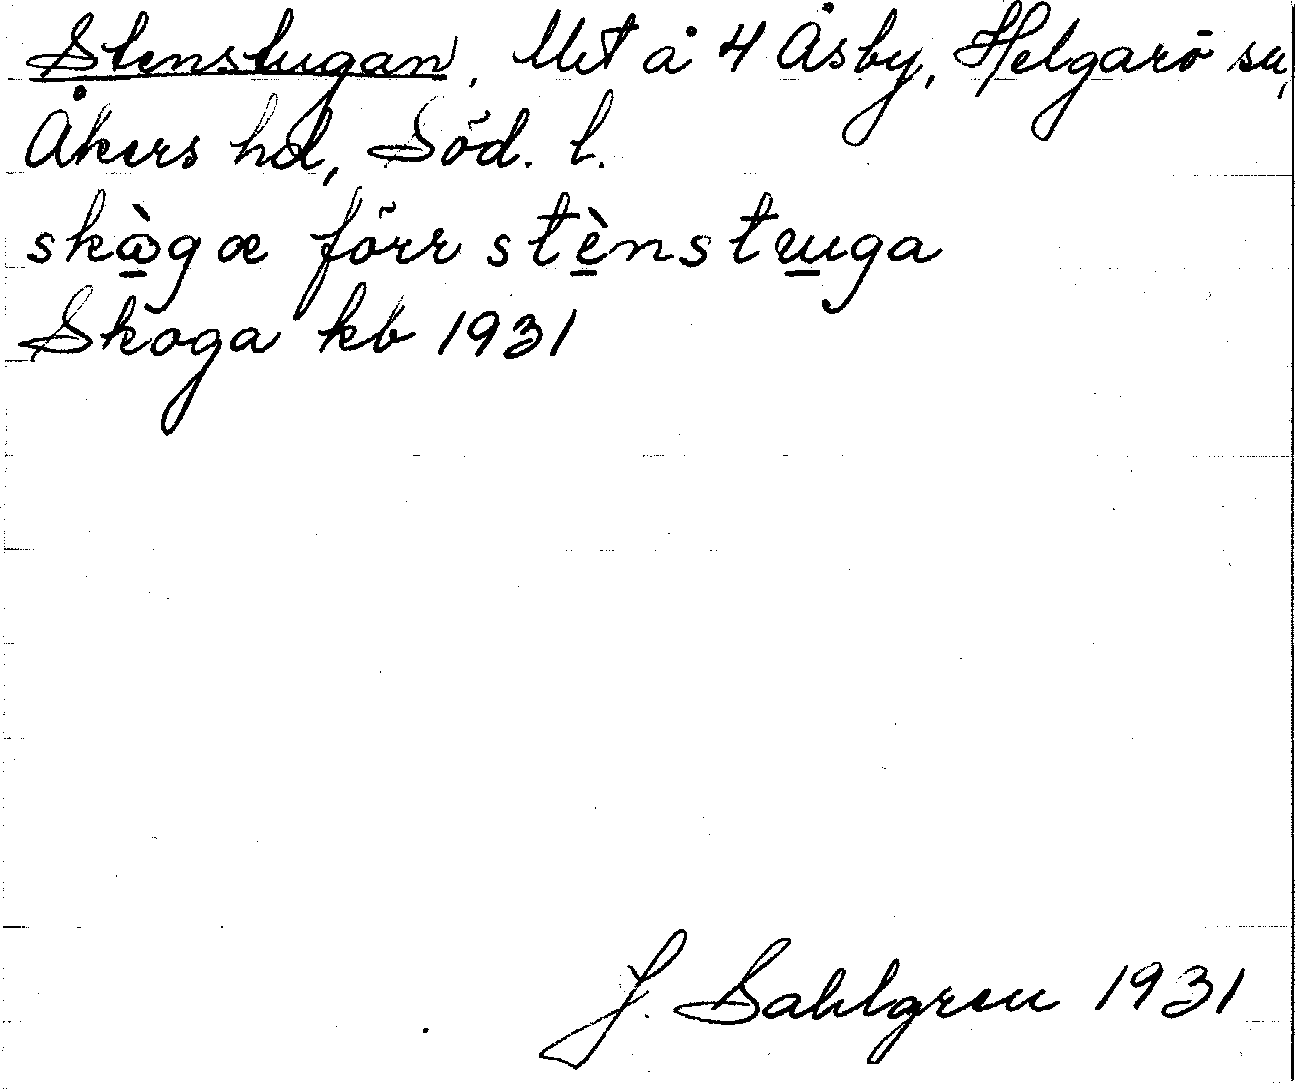 Stenstugan, Utst å 4 Åsby, Helgarö sn,
Åkers hd, Söd. l.
skògæ förr stènstuga
Skoga kb 1931
J. Sahlgren 1931